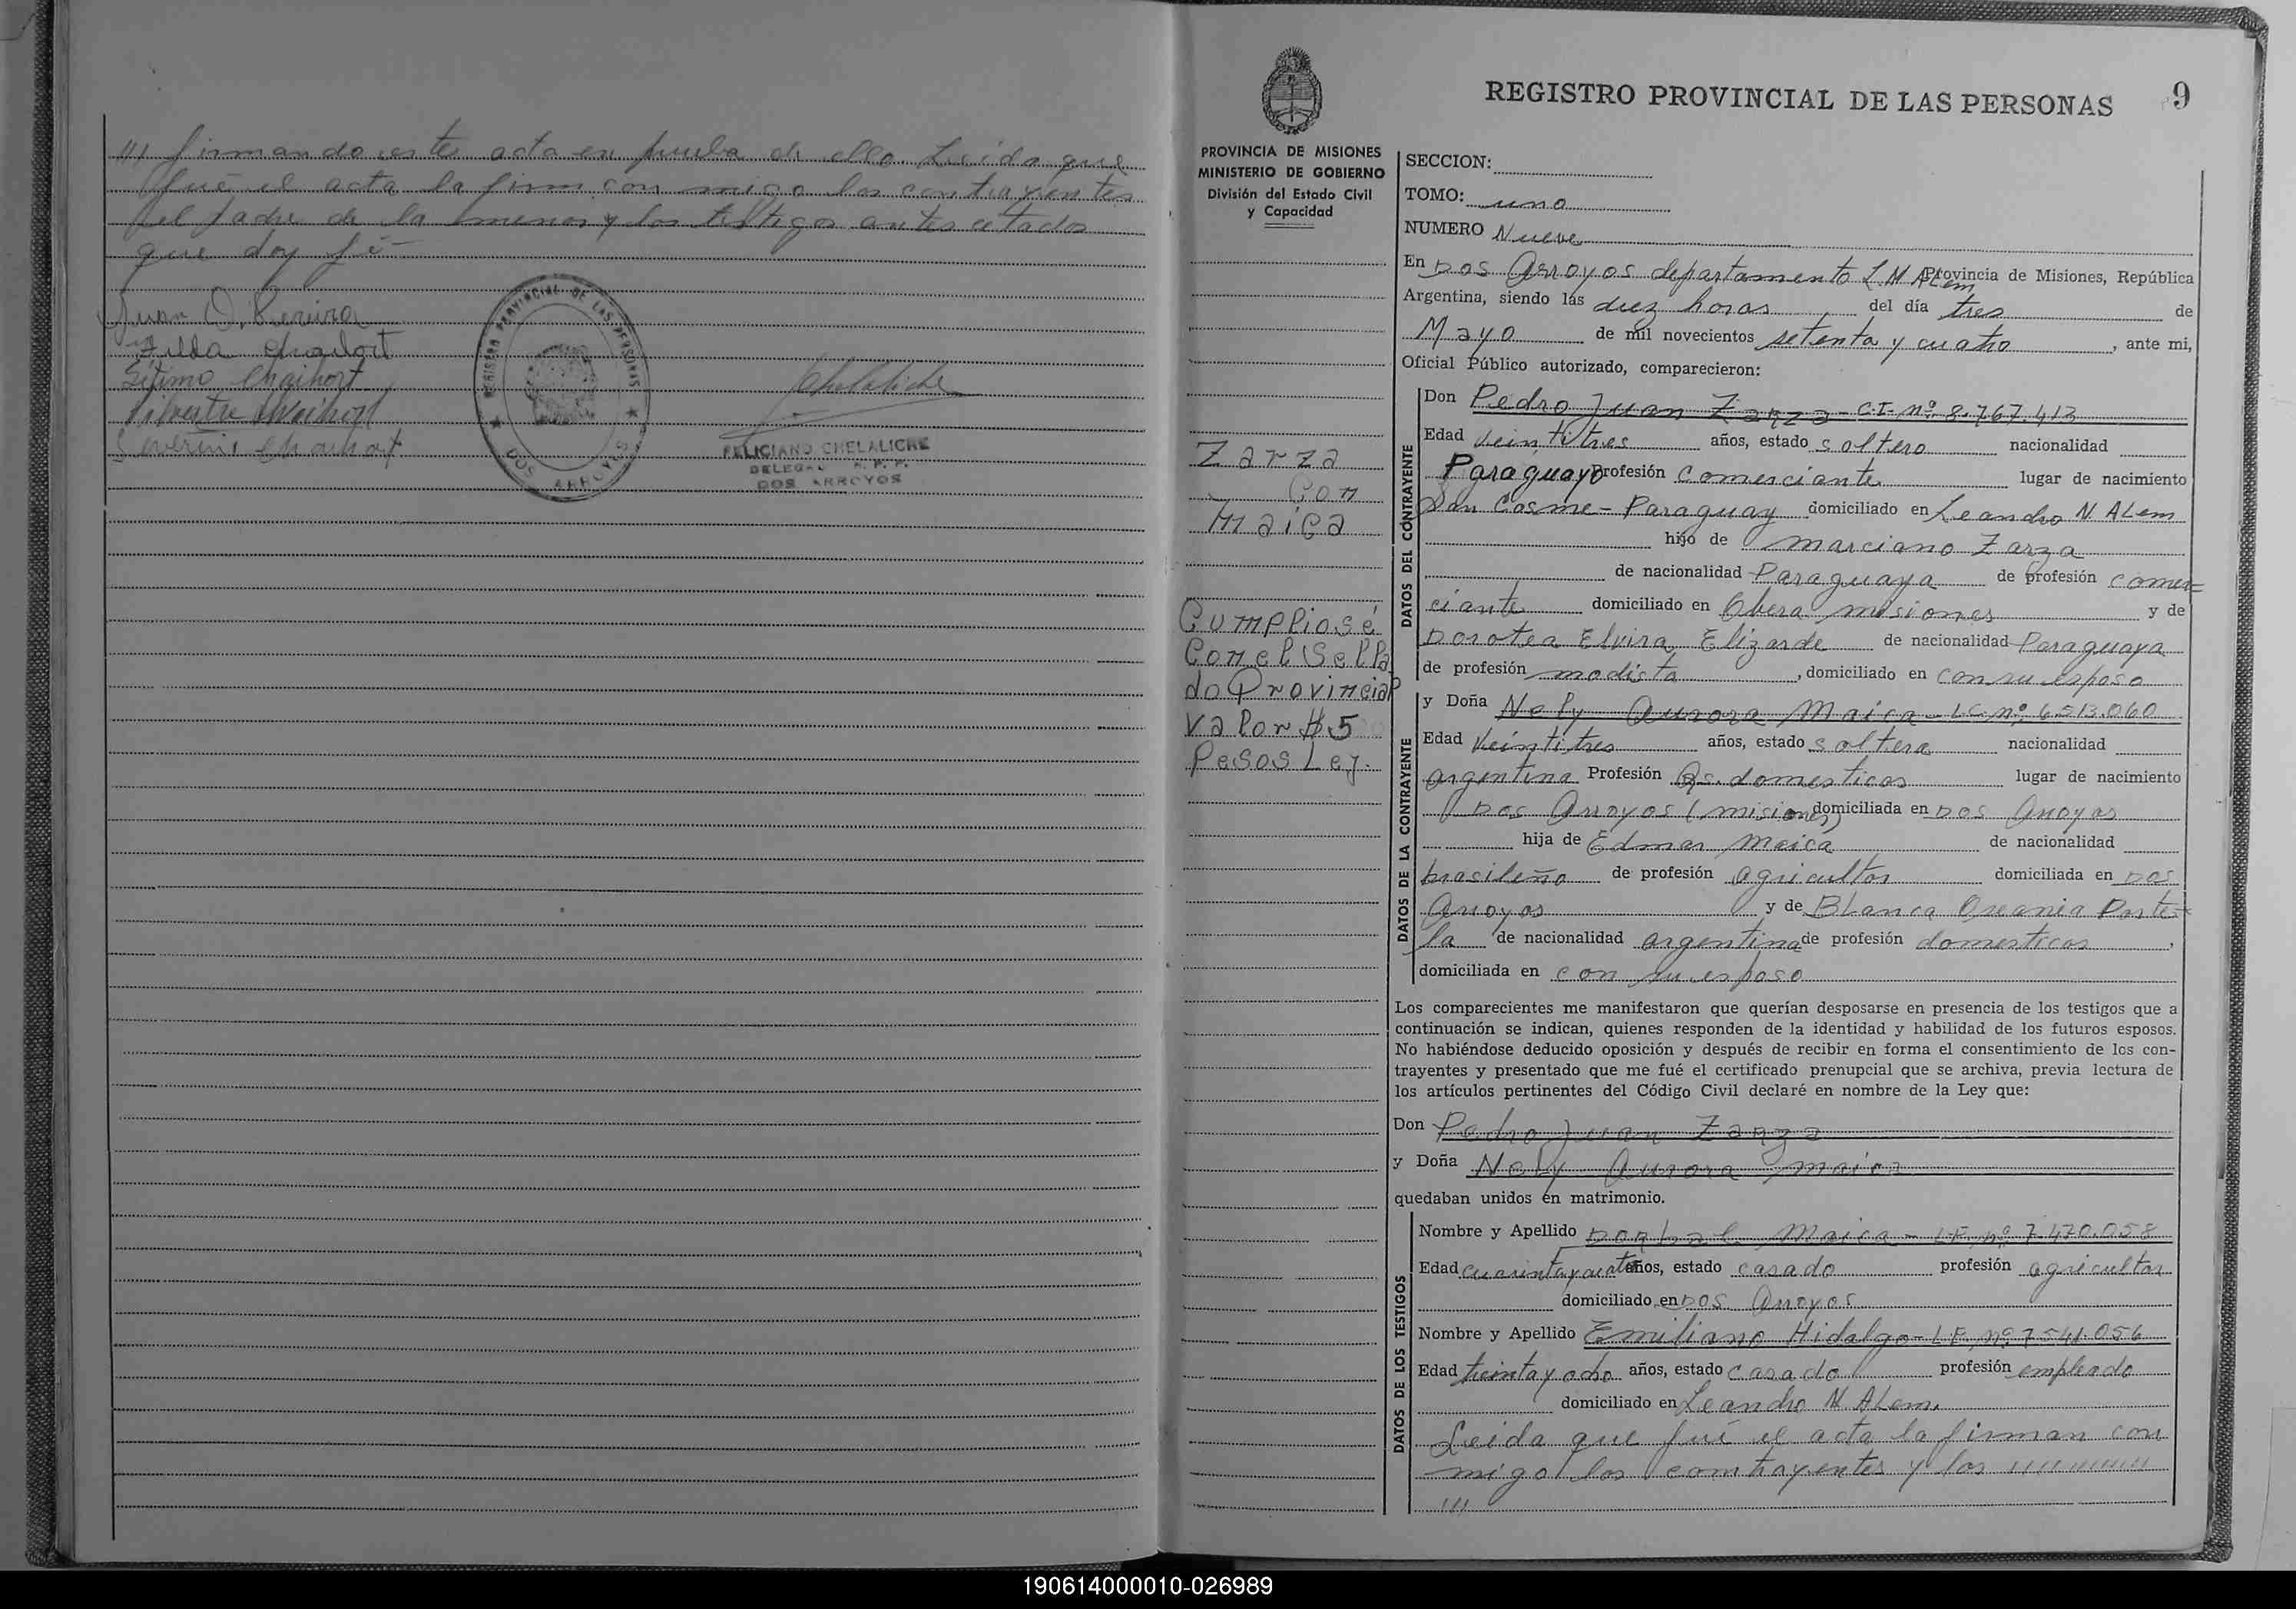 /// firmando este acta en prueba de ello. Leida que
fué el acta la firm con migo los contrayentes
el padre de la menor y los testigos antes citados
que doy fé-
Juan O. Pereira
Zilda
REGISTRO PROVINCIAL DE LAS PERSONAS
DOS ARROYOS
FELICIANO CHELALICHE
DELEGADO R. P. P.
DOS ARROYOS
PROVINCIA DE MISIONES
MINISTERIO DE GOBIERNO
División del Estado Civil
y Capacidad
Zarza
Con
Maica
Cumpliosé
Con el Sella
do Provincial
Valor $5
Pesos Ley.
REGISTRO PROVINCIAL DE LAS PERSONAS 9
SECCION:
TOMO: uno
NUMERO Nueve
En Dos Arroyos departamento L.N. ALem Provincia de Misiones, República
Argentina, siendo las diez horas del día tres de
Mayo de mil novecientos setenta y cuatro, ante mi,
Oficial Público autorizado, comparecieron:
DATOS DEL CONTRAYENTE
Don Pedro Juan Zarza - C.I. nº 8.767.413
Edad Veintitres años, estado soltero nacionalidad
Paraguayo Profesión comerciante lugar de nacimiento
San Cosme - Paraguay domiciliado en Leandro N. ALem
hijo de marciano Zarza
de nacionalidad Paraguaya de profesión comer=
ciante domiciliado en Obera misiones y de
Dorotea Elvira Elizarde de nacionalidad Paraguaya
de profesión modista, domiciliado en con su esposo
DATOS DE LA CONTRAYENTE
y Doña Nely Aurora Maica - LC. nº 6.513.060
Edad Veintitres años, estado soltera nacionalidad
argentina Profesión Qs. domesticos lugar de nacimiento
Dos Arroyos (misiones) domiciliada en Dos Arroyos
hija de Edmar Maica de nacionalidad
brasileño de profesión agricultor domiciliada en Dos
Arroyos y de Blanca Oseania Porte=
la de nacionalidad argentina de profesión domesticos,
domiciliada en con su esposo
Los comparecientes me manifestaron que querían desposarse en presencia de los testigos que a
continuación se indican, quienes responden de la identidad y habilidad de los futuros esposos.
No habiéndose deducido oposición y después de recibir en forma el consentimiento de los con-
trayentes y presentado que me fué el certificado prenupcial que se archiva, previa lectura de
los artículos pertinentes del Código Civil declaré en nombre de la Ley que:
Don Pedro Juan Zarza
y Doña Nely Aurora Maica
quedaban unidos en matrimonio.
DATOS DE LOS TESTIGOS
Nombre y Apellido Dorbal Maica - LE. nº 7.470.058
Edad cuarenta y cuatro años, estado casado profesión agricultor
domiciliado en Dos Arroyos
Nombre y Apellido Emiliano Hidalgo - LE. nº 7.541.056
Edad treinta y ocho años, estado casado profesión empleado
domiciliado en Leandro N. ALem.
Leida que fué el acta la firman con
migo los contrayentes y los //////////
///
190614000010-026989